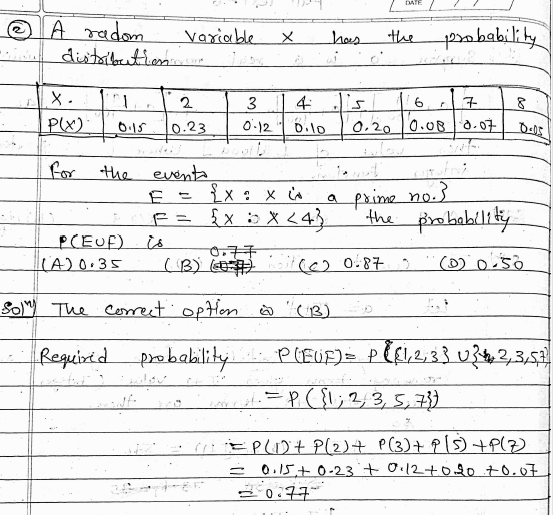 DATE
(2) A radom variable x has the probability
distribution
X. 1 2 3 4 5 6 7 8
P(X) 0.15 0.23 0.12 0.10 0.20 0.08 0.07 0.05
for the events
E = {X : X is a prime no.}
F = {X : X < 4} the probability
P(EUF) is
(A) 0.35 (B) 0.77 (C) 0.87 (D) 0.50
Solⁿ) The correct option is (B)
Required probability P(EUF) = P({1,2,3} U { 2,3,5,7
= P({1,2,3,5,7})
= P(1) + P(2) + P(3) + P(5) + P(7)
= 0.15 + 0.23 + 0.12 + 0.20 + 0.07
= 0.77